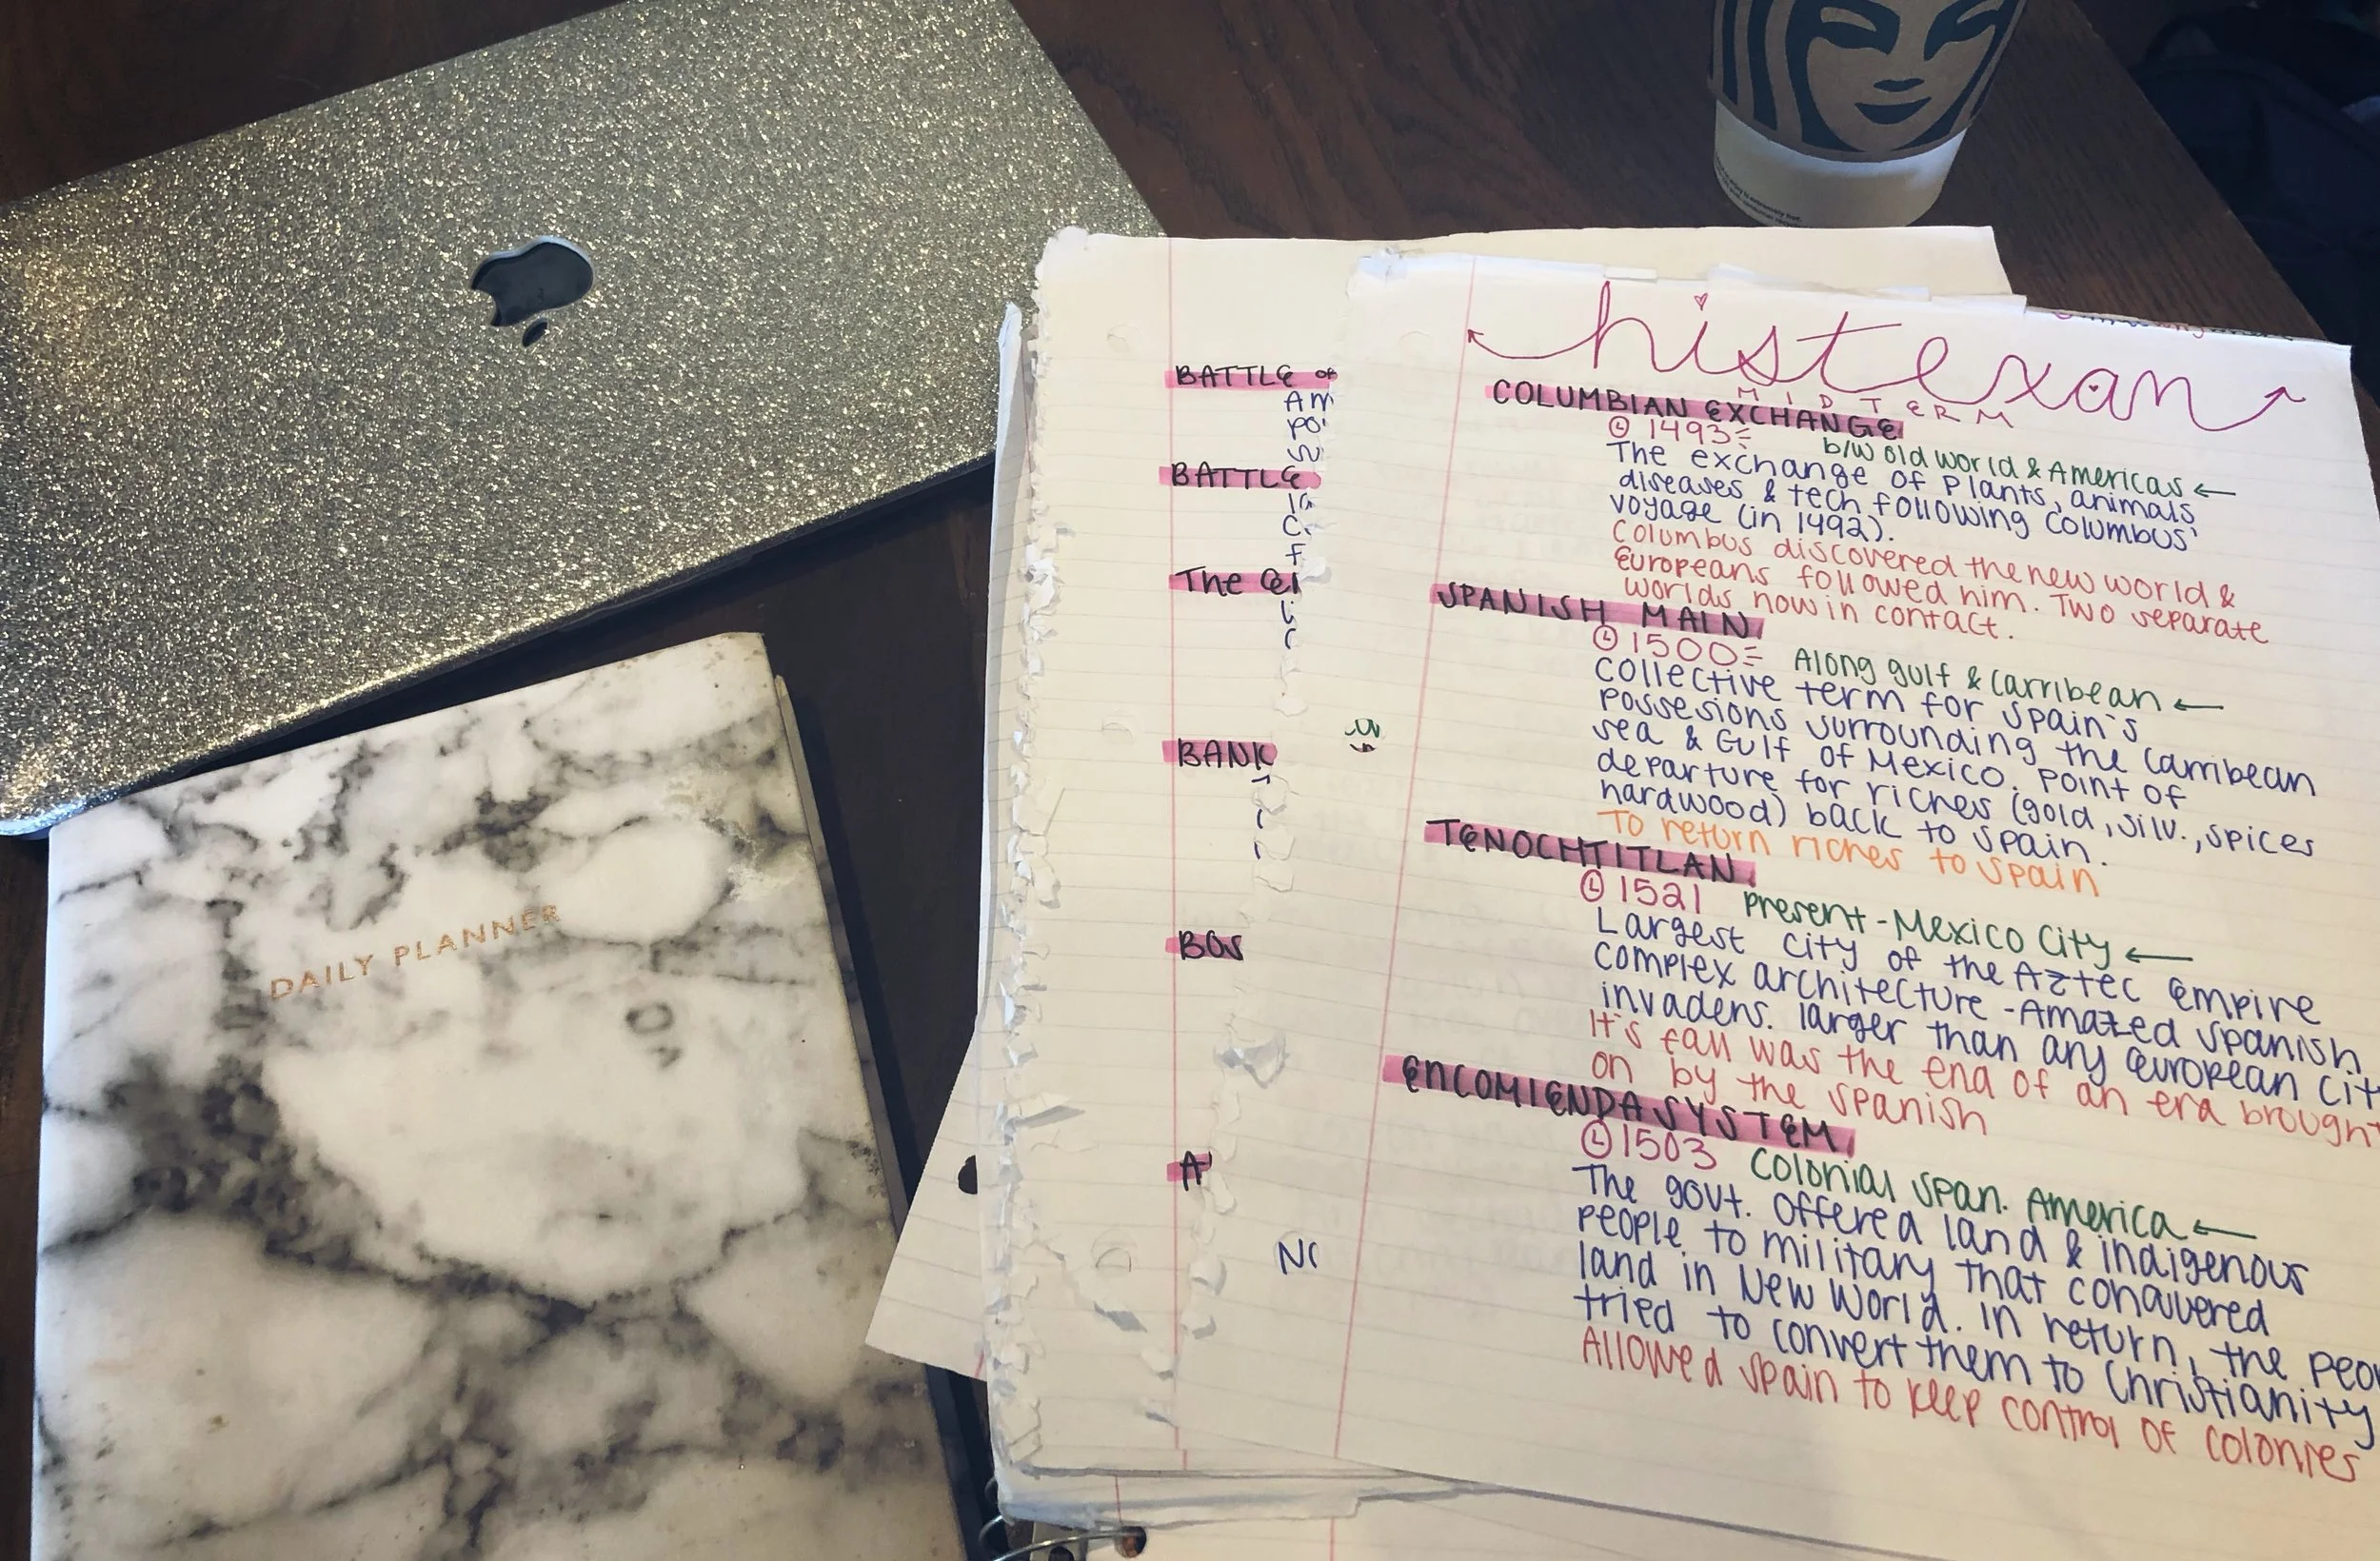 DAILY PLANNER
BATTLE OF
BATTLE
The
BANK
BOS
hist exan
MIDTERM
COLUMBIAN EXCHANGE
1493 b/w old world & Americas ←
The exchange of plants, animals,
diseases & tech following Columbus'
voyage (in 1492).
Columbus discovered the new world &
Europeans followed him. Two separate
worlds now in contact.
SPANISH MAIN
1500 Along gulf & Carribean ←
Collective term for Spain's
possesions surrounding the Carribean
sea & Gulf of Mexico. Point of
departure for riches (gold, silv., spices
hardwood) back to Spain.
To return riches to Spain
TENOCHTITLAN
1521 Present-Mexico City ←
Largest city of the Aztec Empire
complex architecture - Amazed Spanish
invaders. larger than any European cit
It's fall was the end of an era brought
on by the Spanish
ENCOMIENDA SYSTEM
1503 Colonial Span. America ←
The govt. offered land & indigenous
people to military that conquered
land in New World. In return, the peo
tried to convert them to Christianity
Allowed Spain to keep control of colonies